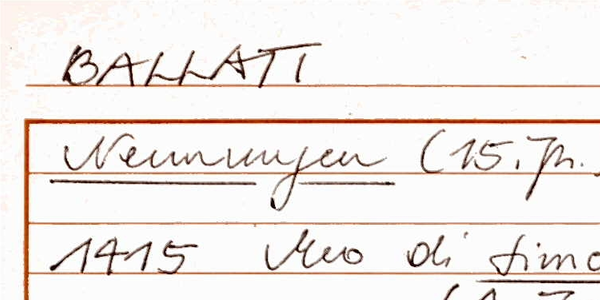 BALLATI
Nennungen (15. Jh.
1415 Meo di